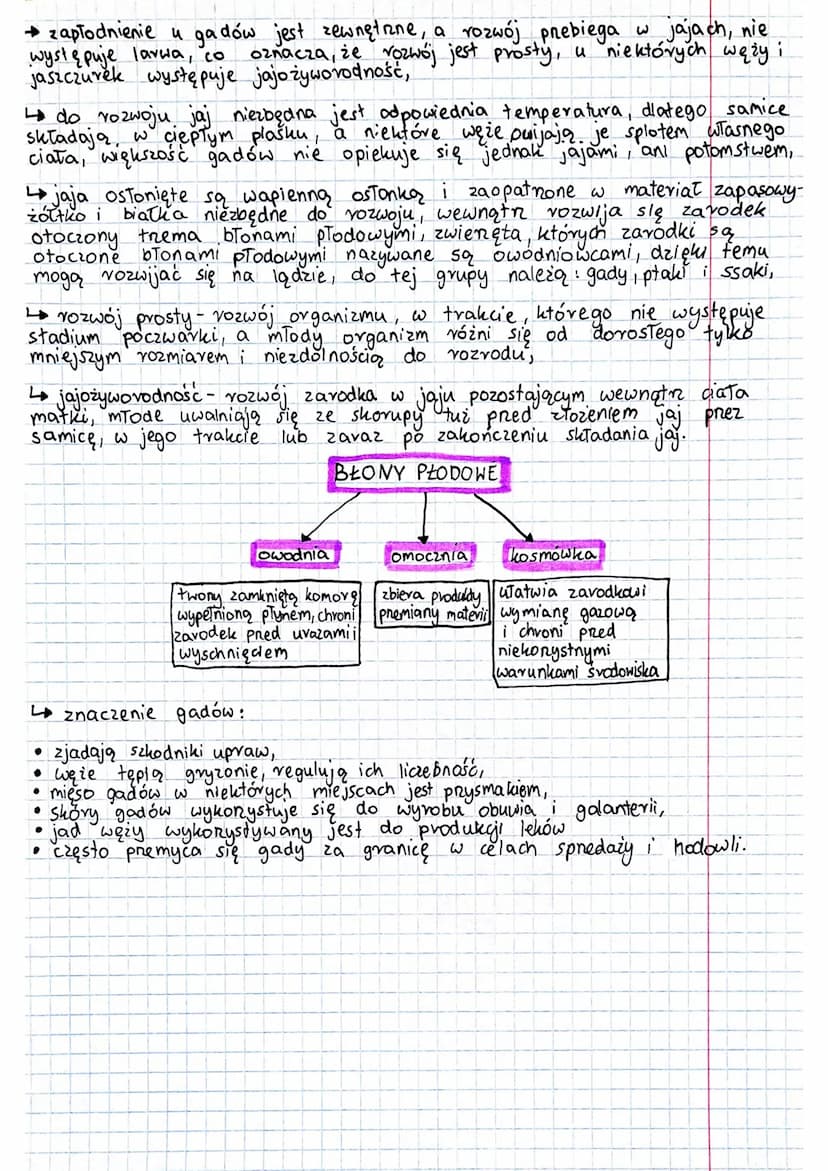 → zapłodnienie u gadów jest zewnętrzne, a rozwój przebiega w jajach, nie
występuje larwa, co oznacza, że rozwój jest prosty, u niektórych węży i
jaszczurek występuje jajożyworodność,
↳ do rozwoju jaj niezbędna jest odpowiednia temperatura, dlatego samice
składają w ciepłym piasku, a niektóre węże owijają je splotem własnego
ciała, większość gadów nie opiekuje się jednak jajami, ani potomstwem,
↳ jaja osłonięte są wapienną osłonką i zaopatrzone w materiał zapasowy-
żółtko i białka niezbędne do rozwoju, wewnątrz rozwija się zarodek
otoczony trzema błonami płodowymi, zwierzęta, których zarodki są
otoczone błonami płodowymi nazywane są owodniowcami, dzięki temu
mogą rozwijać się na lądzie, do tej grupy należą: gady, ptaki i ssaki,
↳ rozwój prosty - rozwój organizmu, w trakcie, którego nie występuje
stadium poczwarki, a młody organizm różni się od dorosłego tylko
mniejszym rozmiarem i niezdolnością do rozrodu,
↳ jajożyworodność - rozwój zarodka w jaju pozostającym wewnątrz ciała
matki, młode uwalniają się ze skorupy tuż przed złożeniem jaj przez
samicę, w jego trakcie lub zaraz po zakończeniu składania jaj.
BŁONY PŁODOWE
owodnia
omocznia
kosmówka
tworzy zamkniętą komorę
wypełnioną płynem, chroni
zarodek przed urazami i
wyschnięciem
zbiera produkty
przemiany materii
ułatwia zarodkowi
wymianę gazową
i chroni przed
niekorzystnymi
warunkami środowiska
↳ znaczenie gadów:
• zjadają szkodniki upraw,
• węże tępią gryzonie, regulują ich liczebność,
• mięso gadów w niektórych miejscach jest przysmakiem,
• skóry gadów wykorzystuje się do wyrobu obuwia i galanterii,
• jad węży wykorzystywany jest do produkcji leków
• często przemyca się gady za granicę w celach sprzedaży i hodowli.